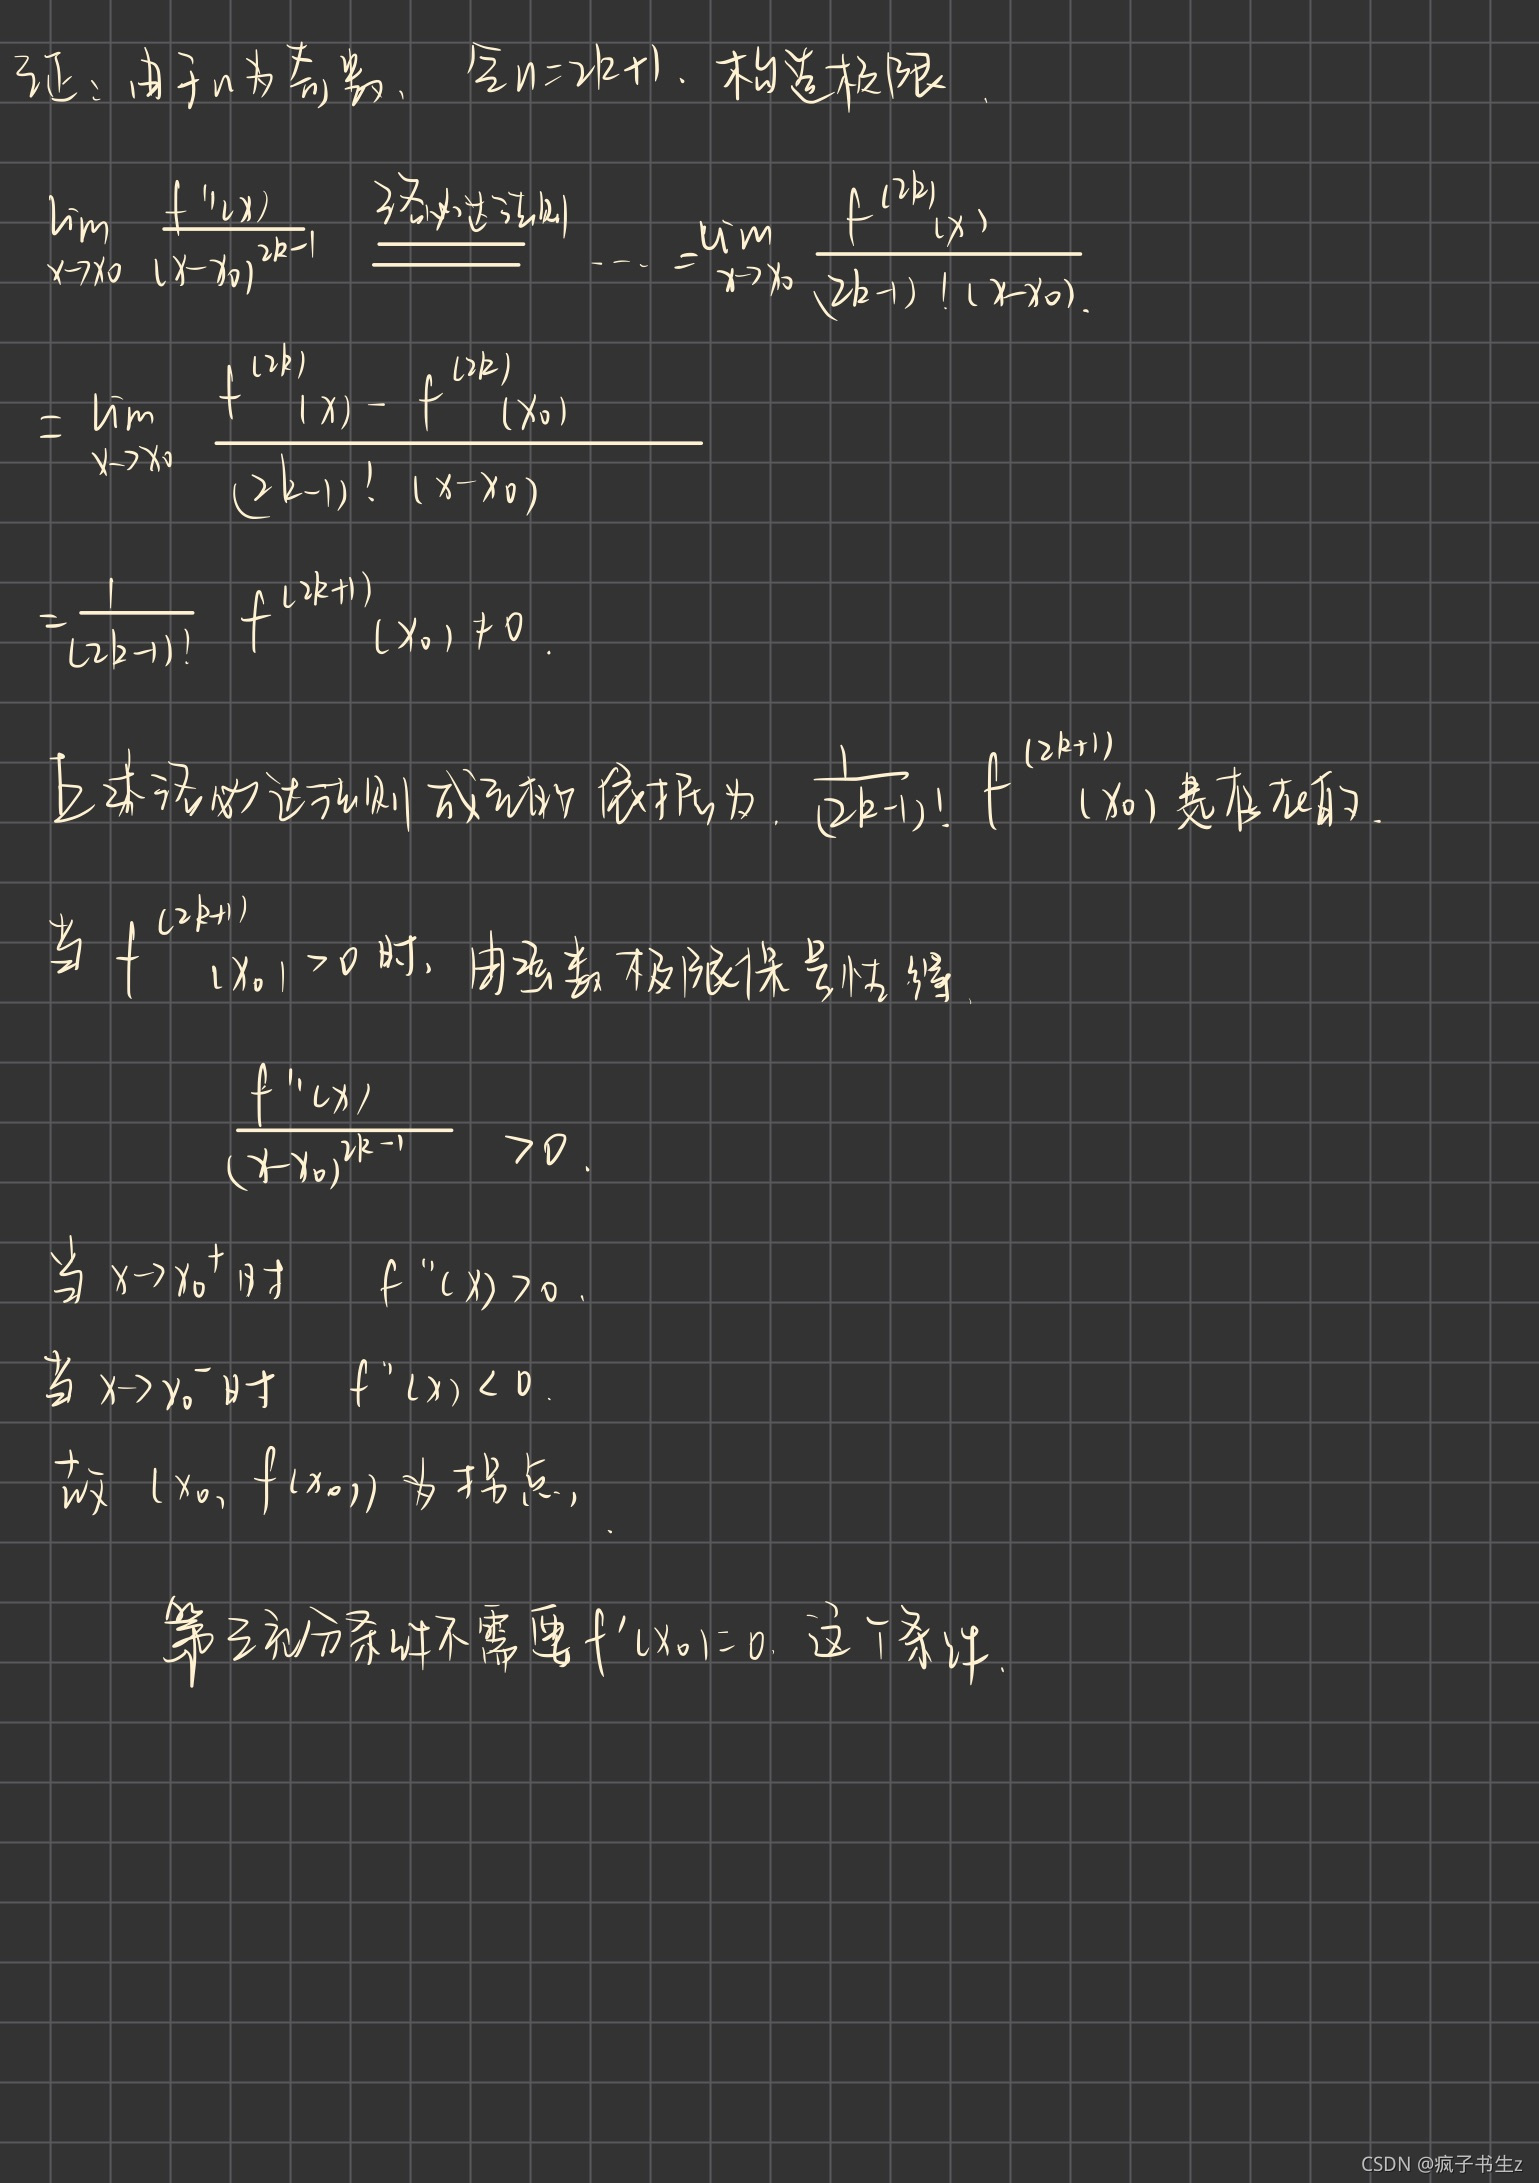 证:由于n为奇数,令n=2k+1.构造极限.
lim x→x₀ f''(x)/(x-x₀)^(2k-1) 洛必达法则 == ···· = lim x→x₀ f^(2k)(x)/((2k-1)!(x-x₀)).
= lim x→x₀ (f^(2k)(x) - f^(2k)(x₀))/((2k-1)!(x-x₀))
= 1/(2k-1)! f^(2k+1)(x₀) ≠ 0.
上述洛必达法则成立的依据为.1/(2k-1)! f^(2k+1)(x₀)是存在的.
当 f^(2k+1)(x₀)>0时,由函数极限保号性得.
f''(x)/(x-x₀)^(2k-1) >0.
当x→x₀⁺时 f''(x)>0.
当x→x₀⁻时 f''(x)<0.
故(x₀,f(x₀))为拐点,.
第三充分条件不需要f'(x₀)=0.这个条件.
CSDN @疯子书生z